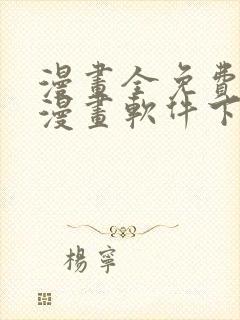 漫畫全免費
漫畫軟件下
楊寧